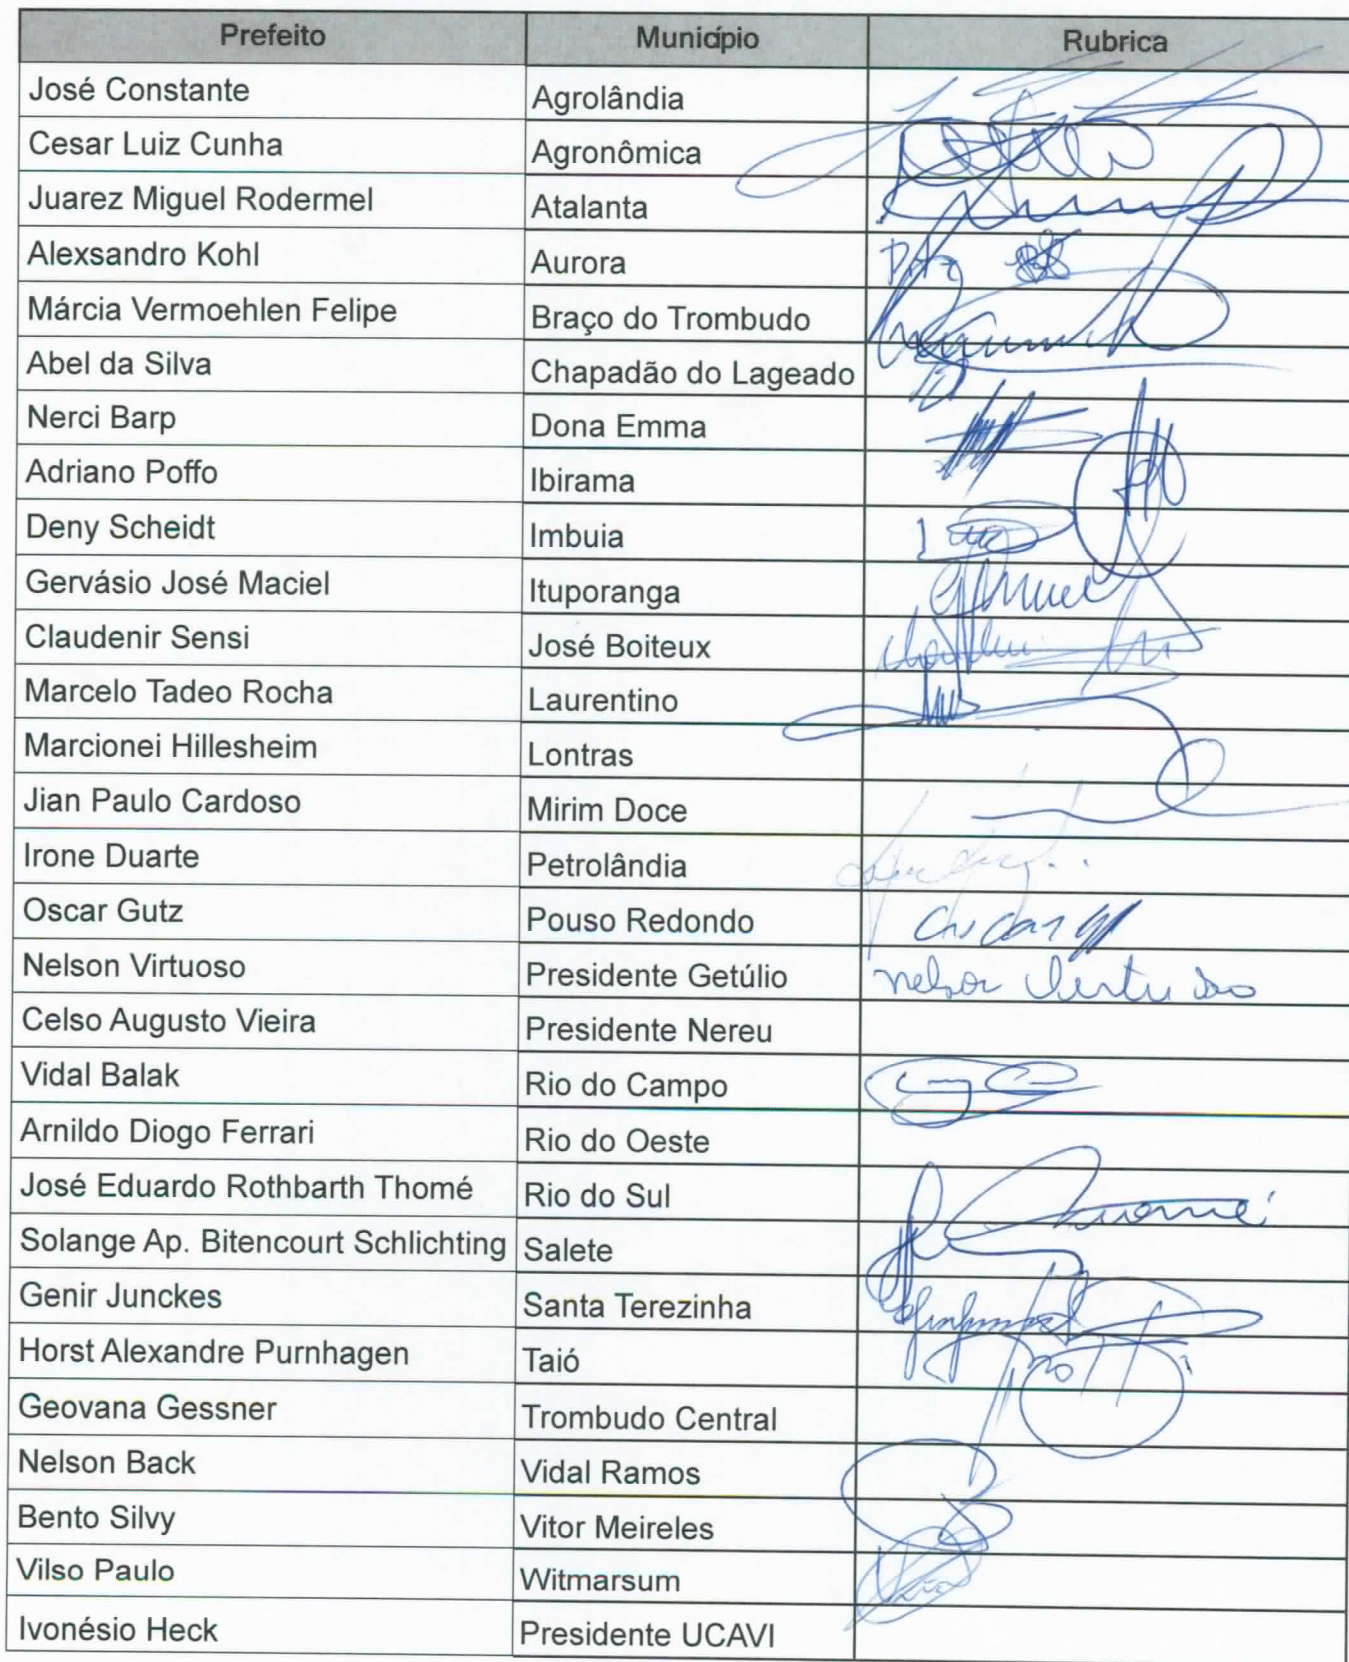 Prefeito Município Rubrica
José Constante Agrolândia
Cesar Luiz Cunha Agronômica
Juarez Miguel Rodermel Atalanta
Alexsandro Kohl Aurora
Márcia Vermoehlen Felipe Braço do Trombudo
Abel da Silva Chapadão do Lageado
Nerci Barp Dona Emma
Adriano Poffo Ibirama
Deny Scheidt Imbuia
Gervásio José Maciel Ituporanga
Claudenir Sensi José Boiteux
Marcelo Tadeo Rocha Laurentino
Marcionei Hillesheim Lontras
Jian Paulo Cardoso Mirim Doce
Irone Duarte Petrolândia
Oscar Gutz Pouso Redondo
Nelson Virtuoso Presidente Getúlio nelson Virtuoso
Celso Augusto Vieira Presidente Nereu
Vidal Balak Rio do Campo
Arnildo Diogo Ferrari Rio do Oeste
José Eduardo Rothbarth Thomé Rio do Sul
Solange Ap. Bitencourt Schlichting Salete
Genir Junckes Santa Terezinha
Horst Alexandre Purnhagen Taió
Geovana Gessner Trombudo Central
Nelson Back Vidal Ramos
Bento Silvy Vitor Meireles
Vilso Paulo Witmarsum
Ivonésio Heck Presidente UCAVI